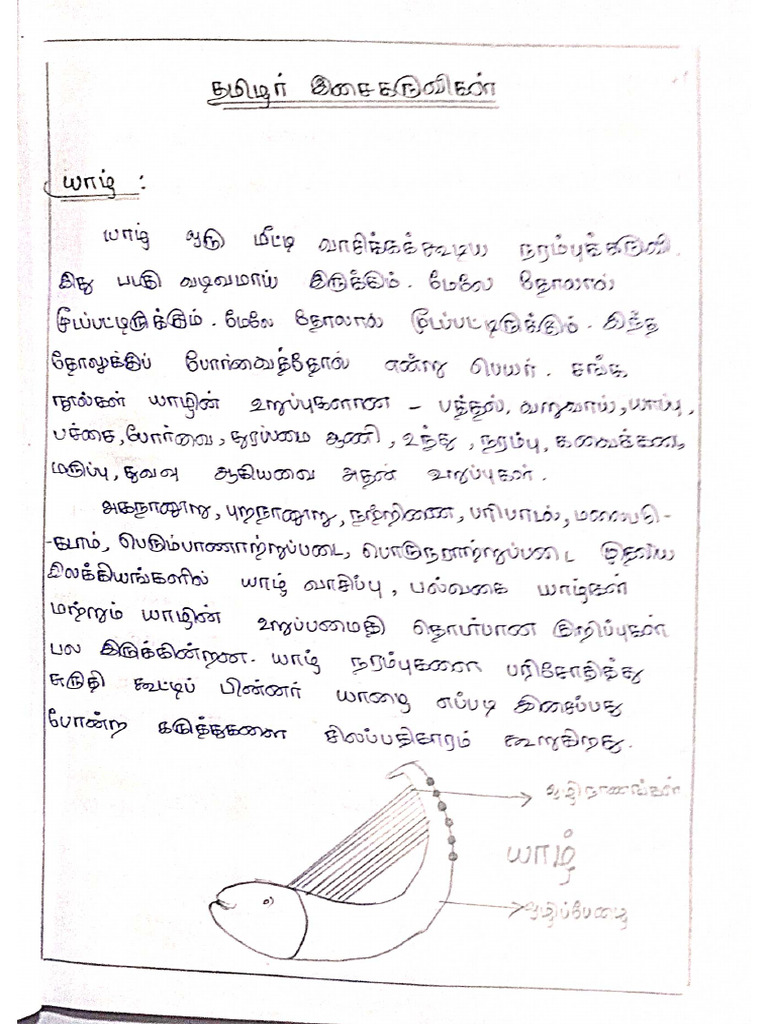 தமிழர் இசைகருவிகள்
யாழ் :
யாழ் ஒரு மீட்டி வாசிக்கக்கூடிய நரம்புக்கருவி.
இது படகு வடிவமாய் இருக்கும். மேலே தோலால்
மூடப்பட்டிருக்கும். மேலே தோலால் மூடப்பட்டிருக்கும். இந்த
தோலுக்குப் போர்வைத்தோல் என்று பெயர். சங்க
நூல்கள் யாழின் உறுப்புகளான - பத்தல், வறுவாய், யாப்பு,
பச்சை, போர்வை, துரப்மை ஆணி, உந்து, நரம்பு, கவைக்கடை,
மருப்பு, துவவு ஆகியவை அதன் உறுப்புகள்.
அகநானூறு, புறநானூறு, நற்றிணை, பரிபாடல், மலைபடு-
-கடாம், பெரும்பாணாற்றுப்படை, பொருநராற்றுப்படை முதலிய
இலக்கியங்களில் யாழ் வாசிப்பு, பல்வகை யாழ்கள்
மற்றும் யாழின் உறுப்பமைதி தொடர்பான குறிப்புகள்
பல இருக்கின்றன. யாழ் நரம்புகளை பரிசோதித்து
சுருதி கூட்டிப் பின்னர் யாழை எப்படி இசைப்பது
போன்ற கருத்துகளை சிலப்பதிகாரம் கூறுகிறது.
யாழ்